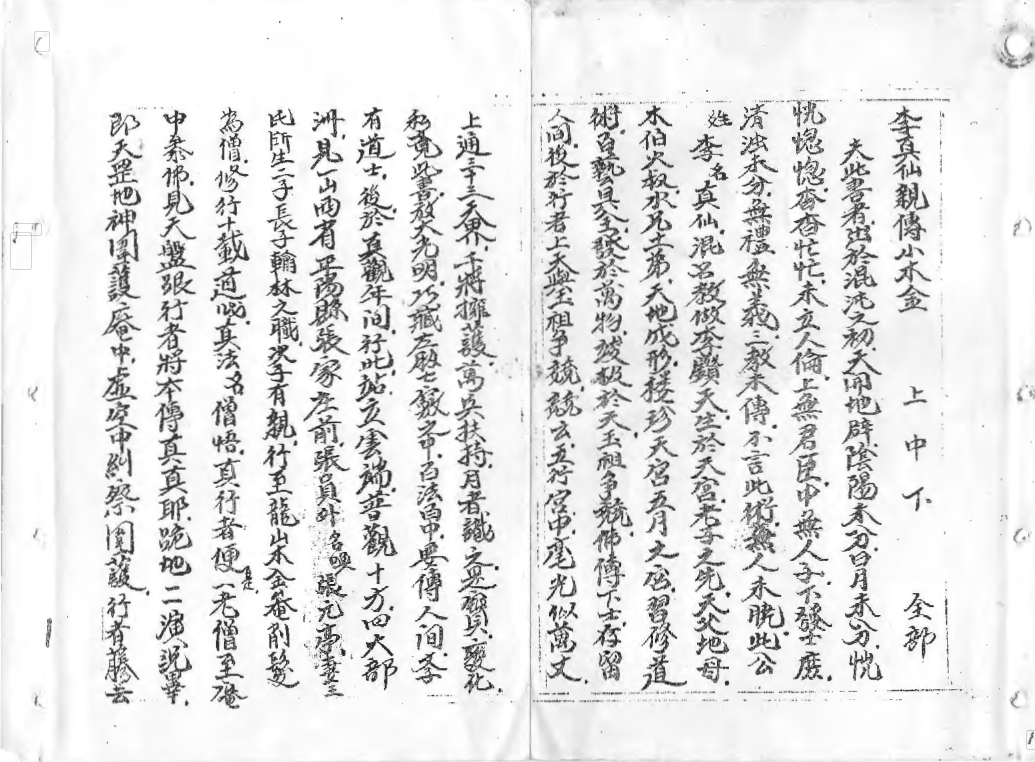 李真仙親傳小木金　上中下　全部
夫此書者出於混沌之初天開地辟陰陽未分日月未分恍
恍惚惚杳杳忙忙未立人倫上無君臣中無人子下發士庶
清濁未分無禮無義三教未傳不言此術無人未脫此公
姓李名真仙混呂教傲李鑽天生於天宮老子之先天父地母
木伯火叔水兄土弟天地成形接珍天宮五月之宮習修道
術百藝具全發於萬物於天玉祖爭競佛傳下士存留
人間後於行者上天與玉祖爭競競玄五行宮中毫光似萬丈
上通三十三天界千將擁護萬兵扶持月者識之變化
私竟此書放大光明巧藏左廒七竅之中百法百中要傳人間多
有道士後於真觀年間行此站立雲端普觀十方四大部
洲見一山西有正陽縣張家庄前張員外名喚張元亭妻王
氏所生二子長子翰林之職次子有親行至龍山木金菴削髮
為僧修行十載道成真法名僧悟真行者便是一老僧至庵
中參佛見大盤張行者將本傳真真耶跪地二演說畢
即天罡地神圍護庵中虛空中糾察圍護行者藤去